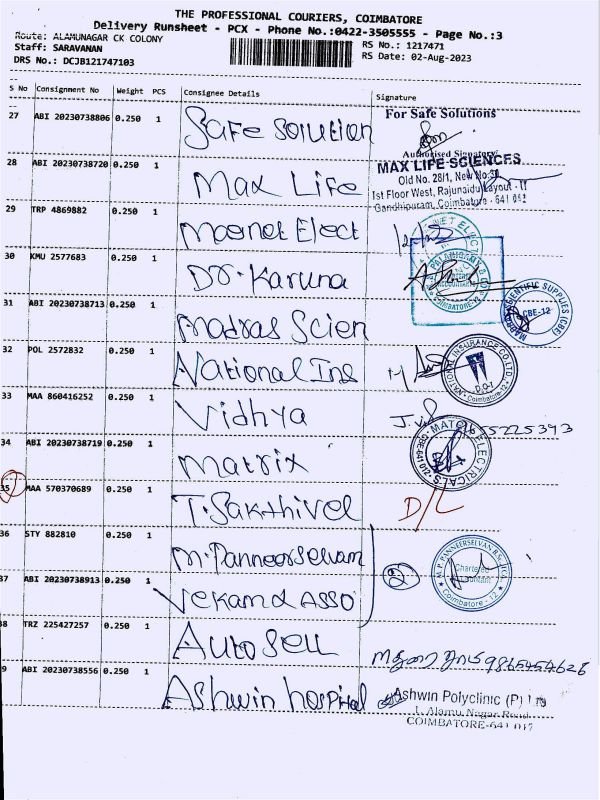 THE PROFESSIONAL COURIERS, COIMBATORE
Delivery Runsheet - PCX - Phone No.:0422-3505555 - Page No.:3
Route: ALAMUNAGAR CK COLONY
Staff: SARAVANAN
DRS No.: DCJB121747103
RS No.: 1217471
RS Date: 02-Aug-2023
S No Consignment No Weight PCS Consignee Details Signature
27 ABI 20230738806 0.250 1 Safe Solution
For Safe Solutions
Authorised Signatory
28 ABI 20230738720 0.250 1 Max Life
MAX LIFE SCIENCES
Old No. 28/1, New No.
1st Floor West, Rajunaidu Layout - II
Gandhipuram, Coimbatore - 641 012
29 TRP 4869882 0.250 1 Magnet Elect
30 KMU 2577683 0.250 1 Dr. Karuna
31 ABI 20230738713 0.250 1 Madras Scien
SCIENTIFIC SUPPLIES (CBE)
CBE-12
32 POL 2572832 0.250 1 National Ins
NATIONAL INSURANCE CO. LTD.
Coimbatore-12
33 MAA 860416252 0.250 1 Vidhya
34 ABI 20230738719 0.250 1 Matrix
ELECTRICALS
35 MAA 570370689 0.250 1 T. Sakthivel D/L
36 STY 882810 0.250 1 M. Panneerselvam
2
M. P. PANNEERSELVAN
Chartered
Accountant
Coimbatore - 12
37 ABI 20230738913 0.250 1 Vekamd Asso
38 TRZ 225427257 0.250 1 Auto Sell
9865454628
39 ABI 20230738556 0.250 1 Ashwin hospital
Ashwin Polyclinic (P) Ltd
1, Alamu Nagar Road
COIMBATORE-641 012